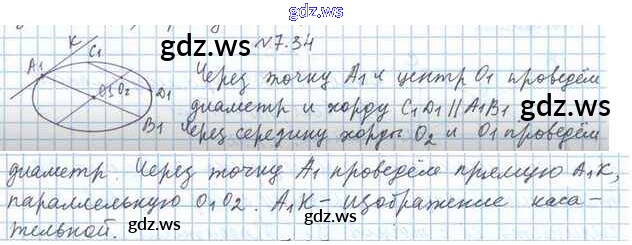 gdz.ws
№7.34
К
C1
A1
O1
O2
D1
B1
Через точку A1 и центр O1 проведём
диаметр и хорду C1D1 || A1B1
Через середину хорды O2 и O1 проведём
диаметр. Через точку A1 проведём прямую A1K,
параллельную O1O2. A1K - изображение каса-
тельной.
gdz.ws
gdz.ws
gdz.ws
gdz.ws
gdz.ws
gdz.ws